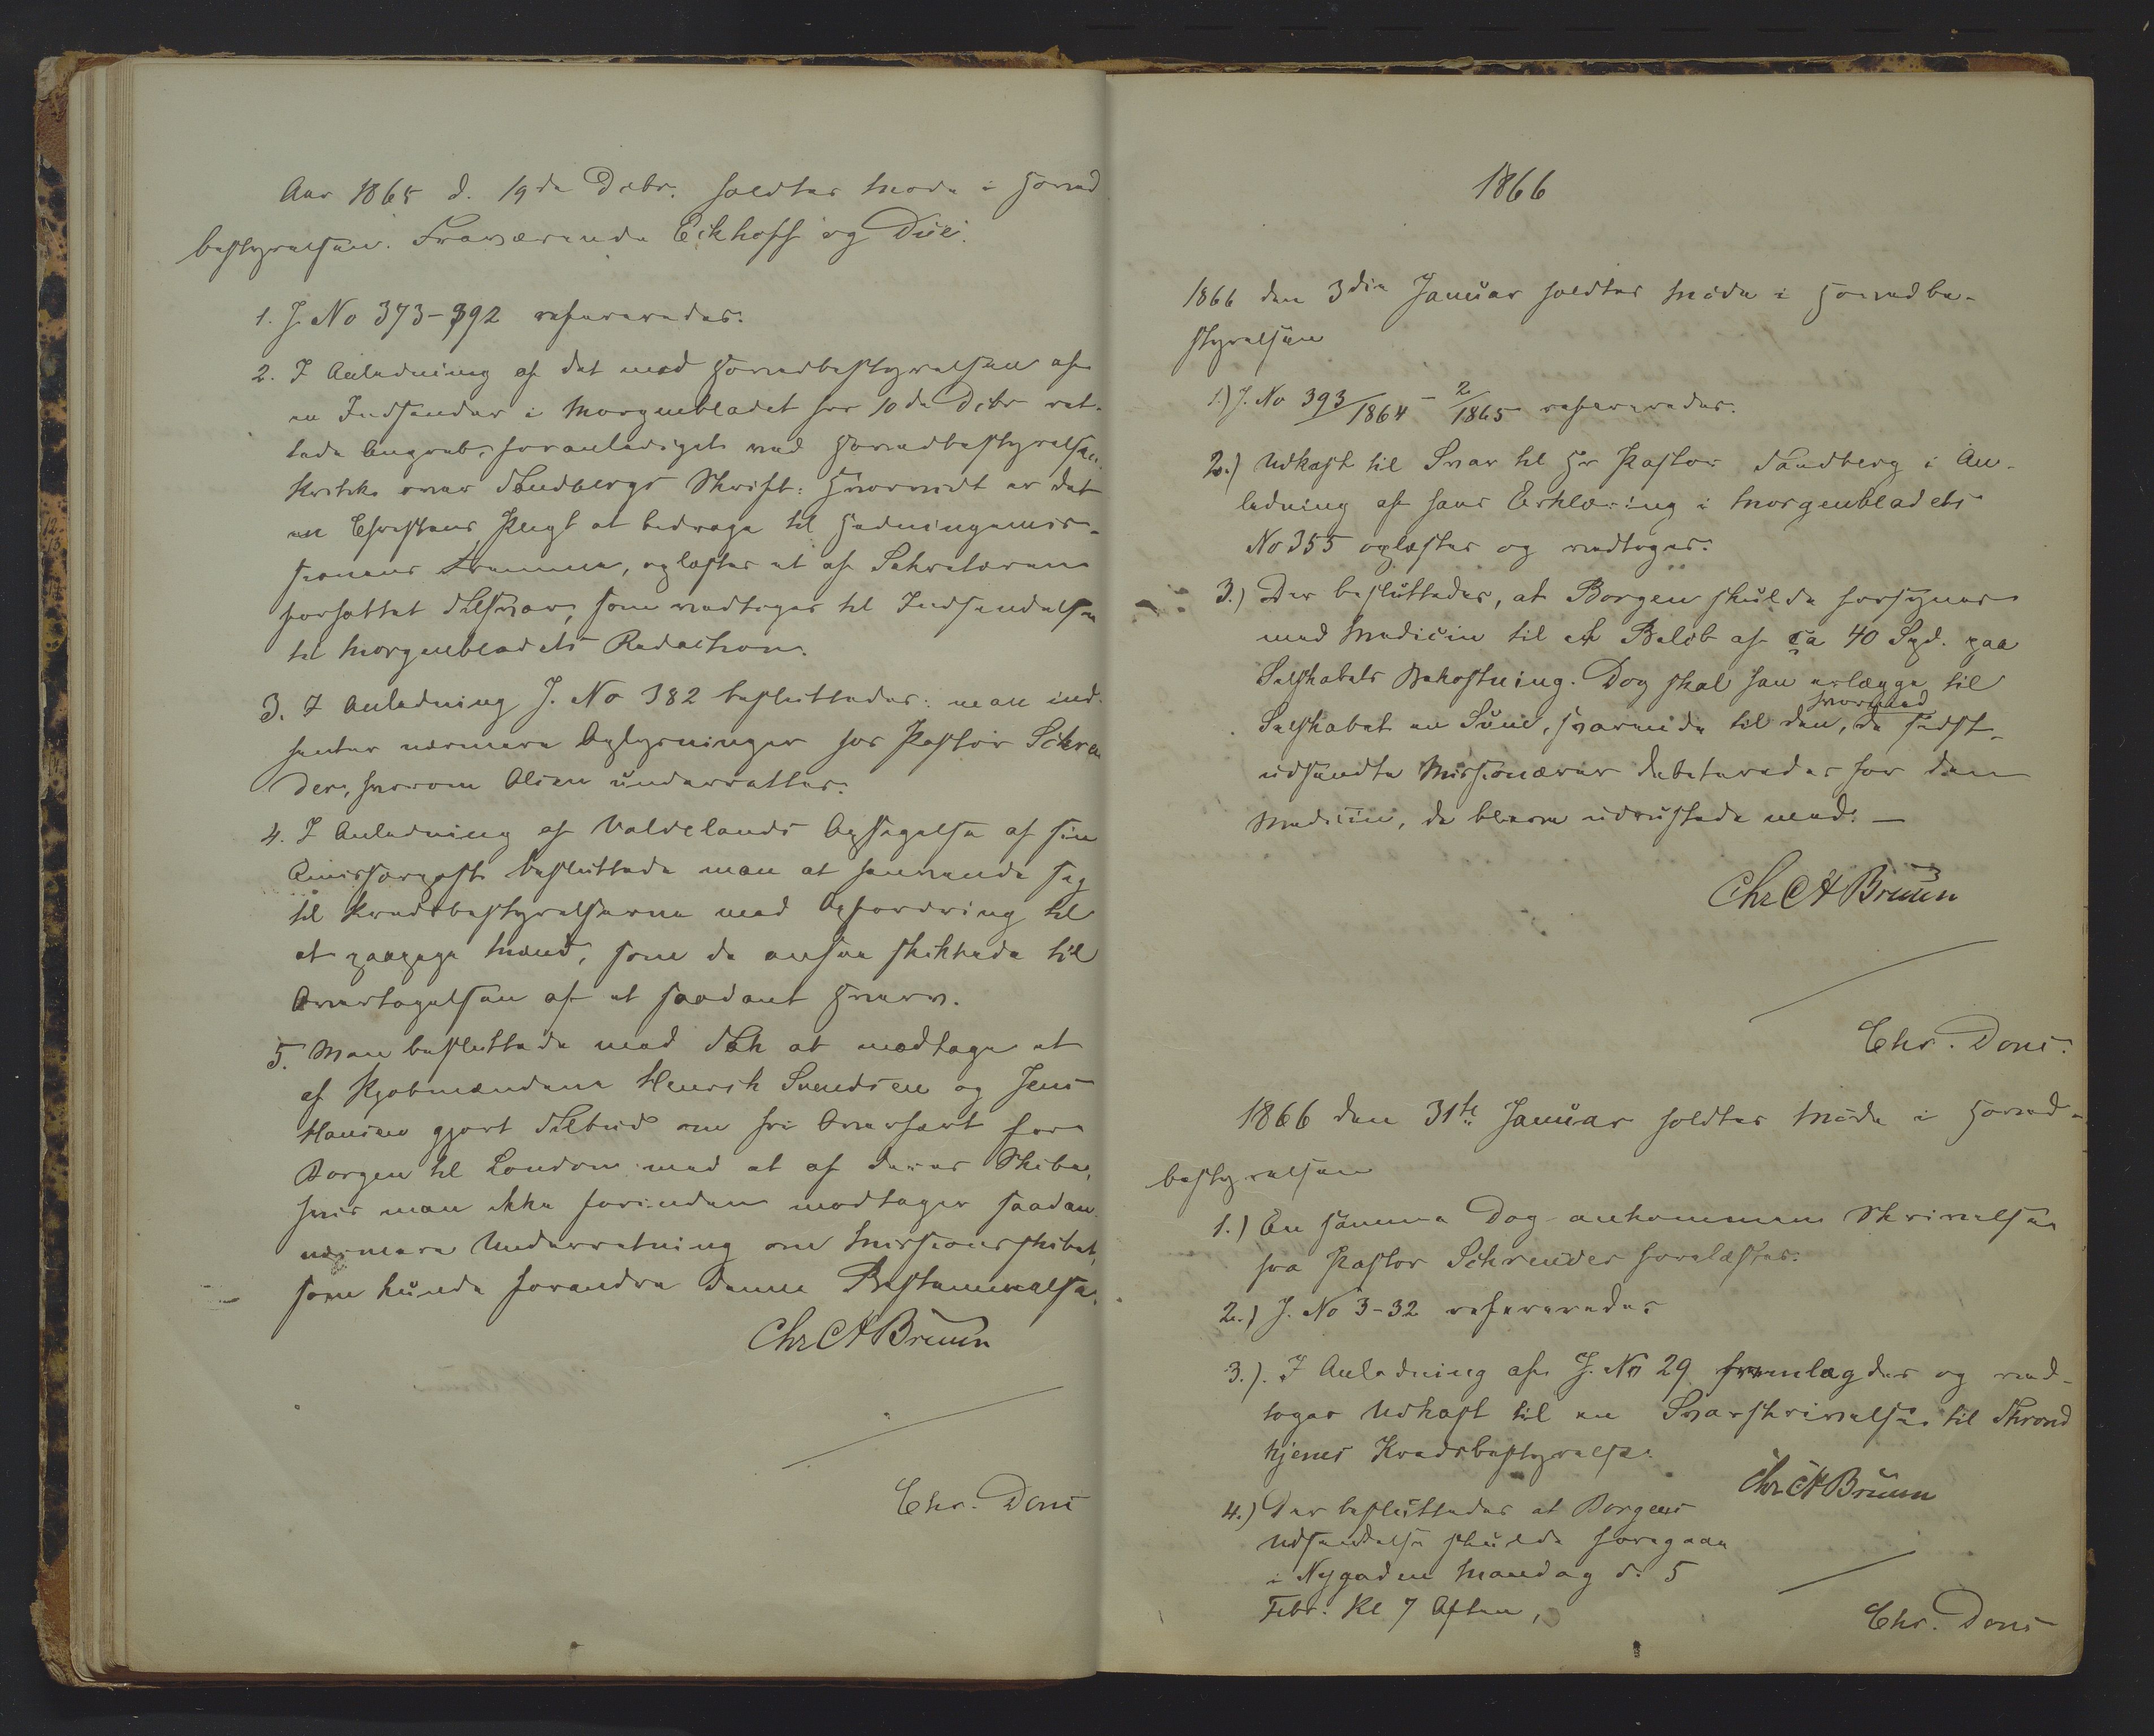 Aar 1865 d. 19de Decbr. holdtes Møde i Hoved
bestyrelsen. Fraværende Eckhoff og Due.
1. J. No 373-392 refereredes.
2. I Anledning af det mod Hovedbestyrelsen af
en Indsender i Morgenbladet for 10de Decbr ret-
tede Angreb, foranlediget ved Hovedbestyrelsens
Kritik over Sandbergs Skrift: Hvorvidt er det
en Christens Pligt at bidrage til Hedningemis-
sionens Fremme, oplæstes et af Sekretæren
forfattet Tilsvar, som vedtoges til Indsendelse
til Morgenbladets Redaction.
3. I Anledning J. No 382 besluttedes: man ind-
henter nærmere Oplysninger hos Pastor Schreu
der, hvorom Olsen underrettes.
4. I Anledning af Valdelands Opsigelse af sin
Emissærpost besluttede man at henvende sig
til Kredsbestyrelserne med Opfordring til
at paapege Mænd, som de ansaa skikkede til
Overtagelsen af et saadant Hverv.
5. Man besluttede med Tak at modtage et
af Kjøbmændene Henrik Svendsen og Jens
Hansen gjort Tilbud om fri Overfart for
Borgen til London med et af deres Skibe,
hvis man ikke forinden modtager saadan
nærmere Underretning om Missionsskibet,
som kunde forandre denne Bestemmelse.
Chr C A Bruun
Chr. Dons
1866
1866 den 3die Januar holdtes Møde i Hovedbe-
styrelsen
1.) J. No 393/1864 - 2/1865 refereredes.
2.) Udkast til Svar til Hr Pastor Sandberg i An-
ledning af hans Erklæring i Morgenbladets
No 355 oplæstes og vedtoges.
3.) Der besluttedes, at Borgen skulde forsynes
med Medicin til et Beløb af ca 40 Spd. paa
Selskabets Bekostning. Dog skal han erlægge til
hvormed
Selskabet en Sum, svarende til den, de sidst-
udsendte Missionærer debiteredes for den
Medicin, de bleve udrustede med. —
Chr C A Bruun
Chr. Dons.
1866 den 31te Januar holdtes Møde i Hoved-
bestyrelsen
1.) En samme Dag ankommen Skrivelse
fra Pastor Schreuder forelæstes.
2.) J. No 3-32 refereredes
3.). I Anledning af J. No 29 fremlagdes og ved-
toges Udkast til en Svarskrivelse til Thrond
hjems Kredsbestyrelse.
Chr C A Bruun
4.) Der besluttedes at Borgens
Udsendelse skulde foregaae
i Nygaden Mandag d. 5
Febr. Kl 7 Aften,
Chr. Dons